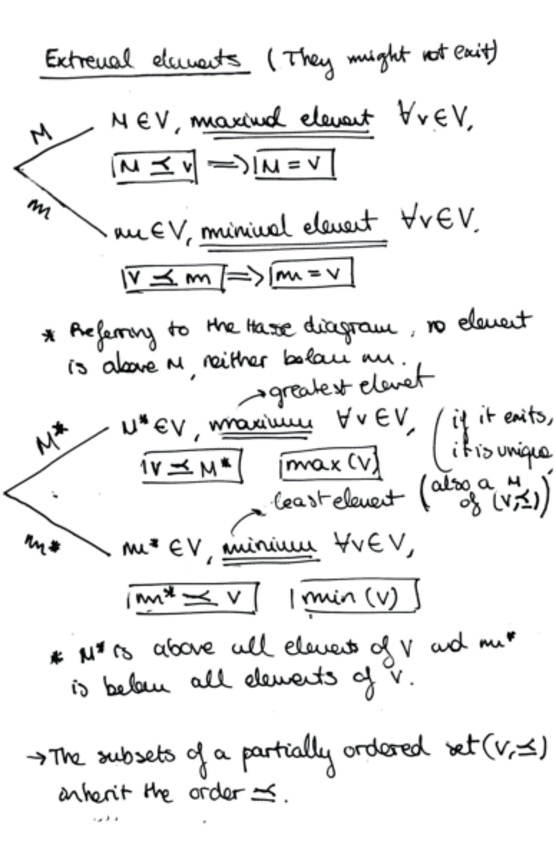 Extremal elements (They might not exit)
M M ∈ V, maximal element ∀v ∈ V,
M ⪯ v ⟹ M = V
m m ∈ V, minimal element ∀v ∈ V.
V ⪯ m ⟹ m = v
* Referring to the Hasse diagram, no element
is above M, neither below m.
→ greatest elemet
M* M* ∈ V, maximum ∀v ∈ V, (if it exits,
V ⪯ M* max (V) it is unique,
least element (also a M of (V,⪯))
m* m* ∈ V, minimum ∀v ∈ V,
m* ⪯ V min (V)
* M* is above all elements of V and m*
is below all elements of V.
→ The subsets of a partially ordered set (V,⪯)
inherit the order ⪯.